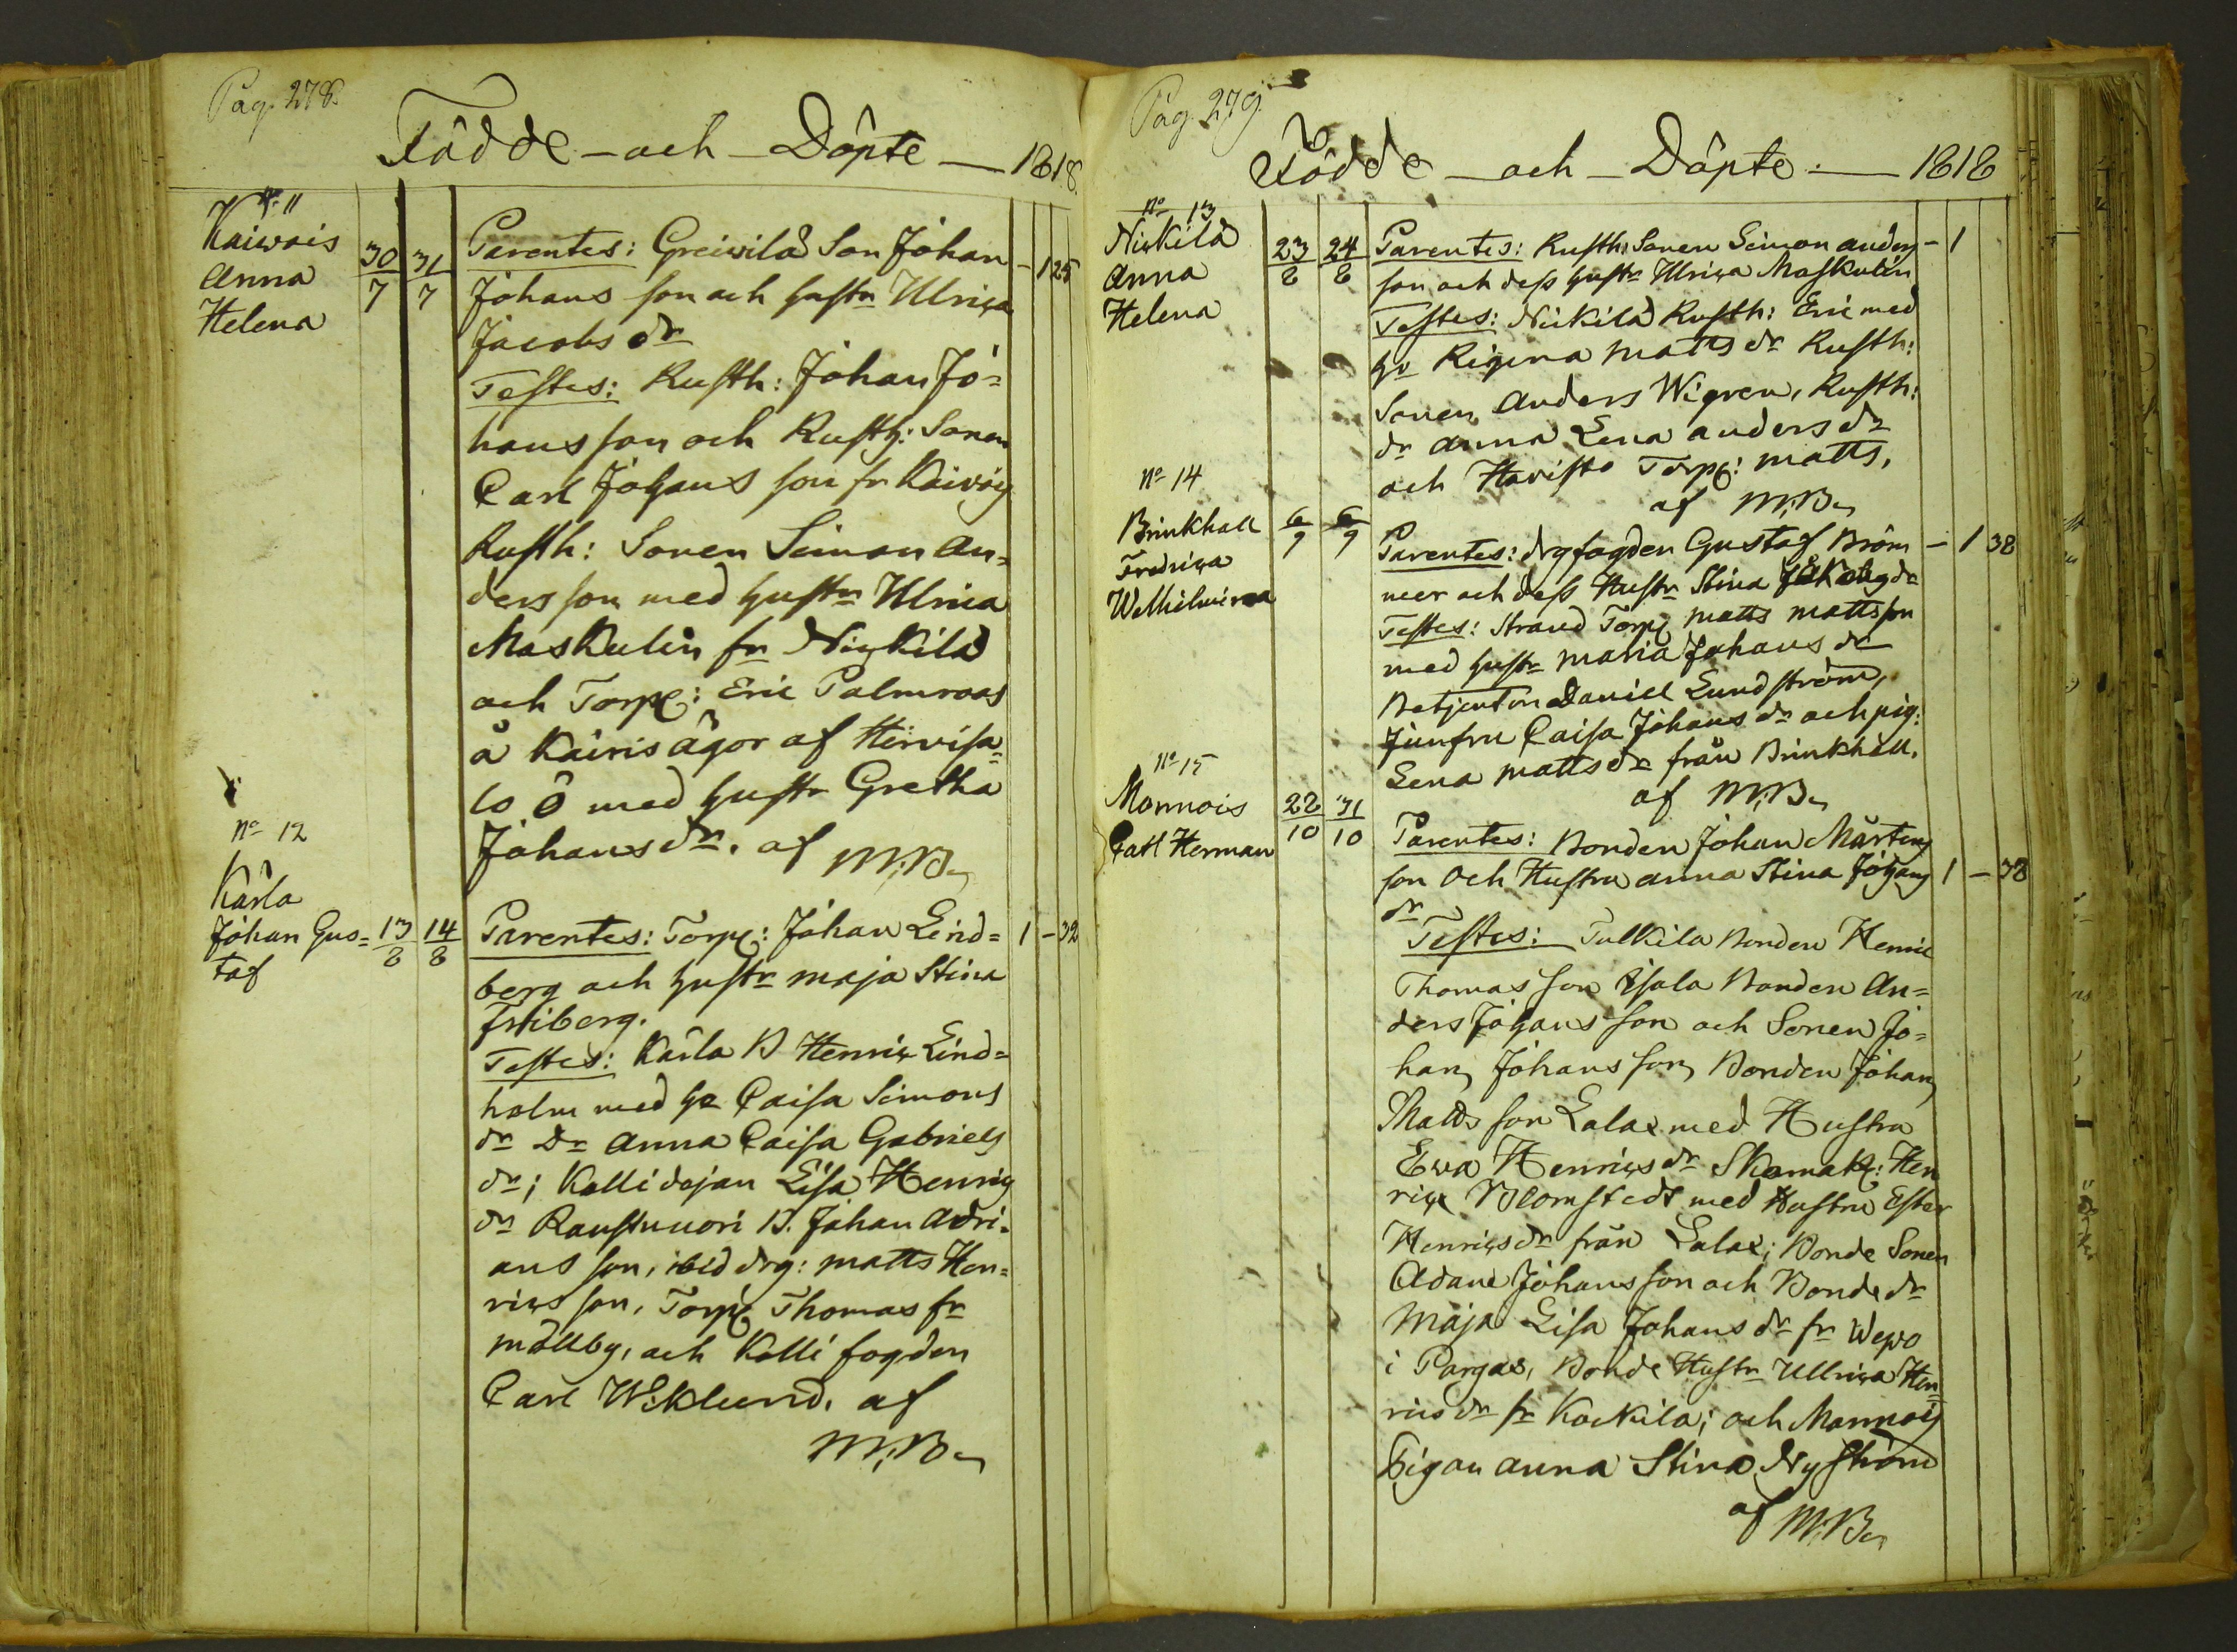 Pag. 278.
Födde – och – Döpte — 1818.
N: 11
Kaiwois
Anna
Helena
30/7 31/7
Parentes: Greiwilä Son Johan – 1 25
Johans son och hustr Ulrica
Jacobs dr
Testes: Rusth: Johan Jo=
hans son och Rusth: Sonen
Carl Johans son fr Kaivois
Rusth: Sonen Simon An=
ders son med hustr Ulrica
Maskulin fr Nickilä
och Torp: Eric Palmroos
å Kairis ägor af Hirvisa=
lo Ö med hustr Gretha
Johans dr. af M:B
No 12
Kärla
Johan Gus=
taf
13/8 14/8
Parentes: Torp: Johan Lind= 1 – 32
berg och hustr Maja Stina
Friberg.
Testes: Kärla B Henric Lind=
holm med h Caisa Simons
dr Dr Anna Caisa Gabriels
dr; Kalli dejan Lisa Henrics
dr Raustvuori B. Johan Adri=
ans son, ibid drg: Matts Hen=
rics son, Torp Thomas fr
Mällby, och Kalli fogden
Carl Wiklund. af
M:B
Pag. 279.
Födde – och – Döpte — 1818
No 13
Nickilä
Anna
Helena
23/8 24/8
Parentes: Rusth: Sonen Simon Anders – 1
son och dess hustr Ulrica Maskulin
Testes: Nickilä Rusth: Eric med
h Regina Matts dr Rusth:
Sonen Anders Wigren, Rusth:
dr Anna Lena Anders dr
och Haristo Torp: Matts,
af M:B
No 14
Brinkhall
Fredrica
Wilhelmina
6/9 6/9
Parentes: Nyfogden Gustaf Bröm – 1 38
mer och dess Hustr Stina dr
Testes: Strand Torp Matts Mattsson
med hustr Maria Johans dr
Betjenten Daniel Lundström,
Junfru Caisa Johans dr och pig:
Lena Matts dr från Brinkhall.
af M:B
No 15
Monnois
Carl Herman
28/10 31/10
Parentes: Bonden Johan Mårtens
son Och Hustru Anna Stina Johans 1 – 38
dr
Testes: Tulkila Bonden Henric
Thomas son Isala Bonden An=
ders Johans son och Sonen Jo=
han Johans son, Bonden Johan
Matts son Lalax med Hustru
Ewa Henrics dr Skomak: Hen
ric Blomstedt med Hustru Ester
Henrics dr från Lalax; Bonde Sonen
Adam Johans son och Bonde dr
Maja Lisa Johans dr fr Wepo
i Pargas, Bonde Hustr Ullrica Hen=
rics dr fr Kockila; och Monnois
Pigan Anna Stina Nyström
af M:B